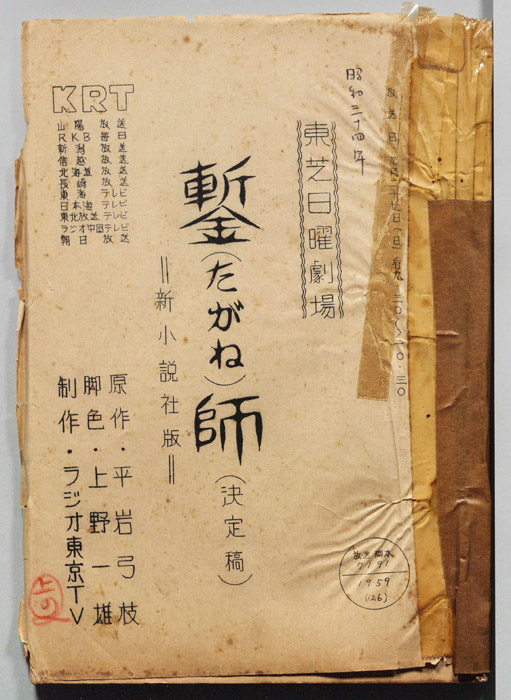 昭和三十四年
東芝日曜劇場
鏨(たがね)師(決定稿)
＝新小説社版＝
KRT
山陽放送
RKB毎日
新潟放送
信越放送
北海道放送
長崎放送
東海テレビ
日本海テレビ
東北放送テレビ
ラジオ中国テレビ
朝日放送
原作・平岩弓枝
脚色・上野一雄
制作・ラジオ東京TV
上の
放送脚本
7791
1959
(126)